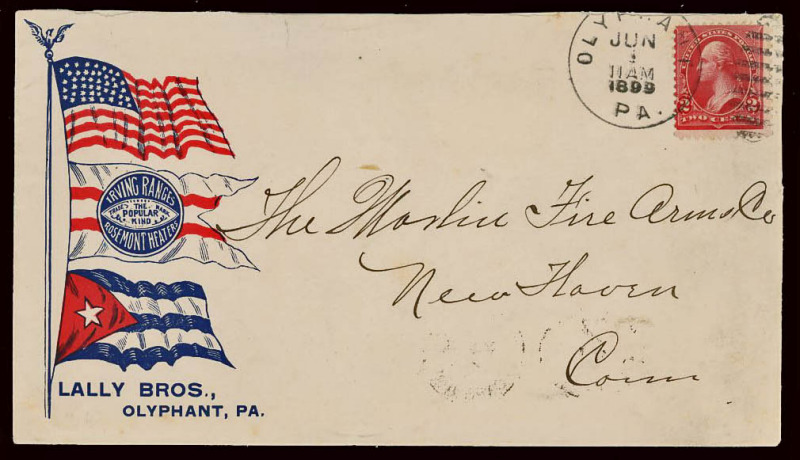 OLYPHANT
JUN
11 AM
1899
PA.
TWO CENTS
IRVING RANGES
THE
POPULAR
KIND
ROSEMONT HEATERS
The Marlin Fire Arms Co
New Haven
Conn
LALLY BROS.,
OLYPHANT, PA.